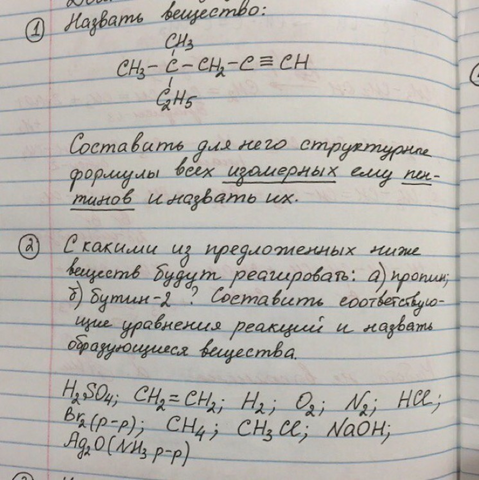 ① Назвать вещество:
CH3
CH3 – C – CH2 – C ≡ CH
C2H5
Составить для него структурные
формулы всех изомерных ему пен-
тинов и назвать их.
② С какими из предложенных ниже
веществ будут реагировать: а) пропин;
б) бутин-2? Составить соответствую-
щие уравнения реакций и назвать
образующиеся вещества.
H2SO4; CH2=CH2; H2; O2; N2; HCl;
Br2(р-р); CH4; CH3Cl; NaOH;
Ag2O(NH3 р-р)